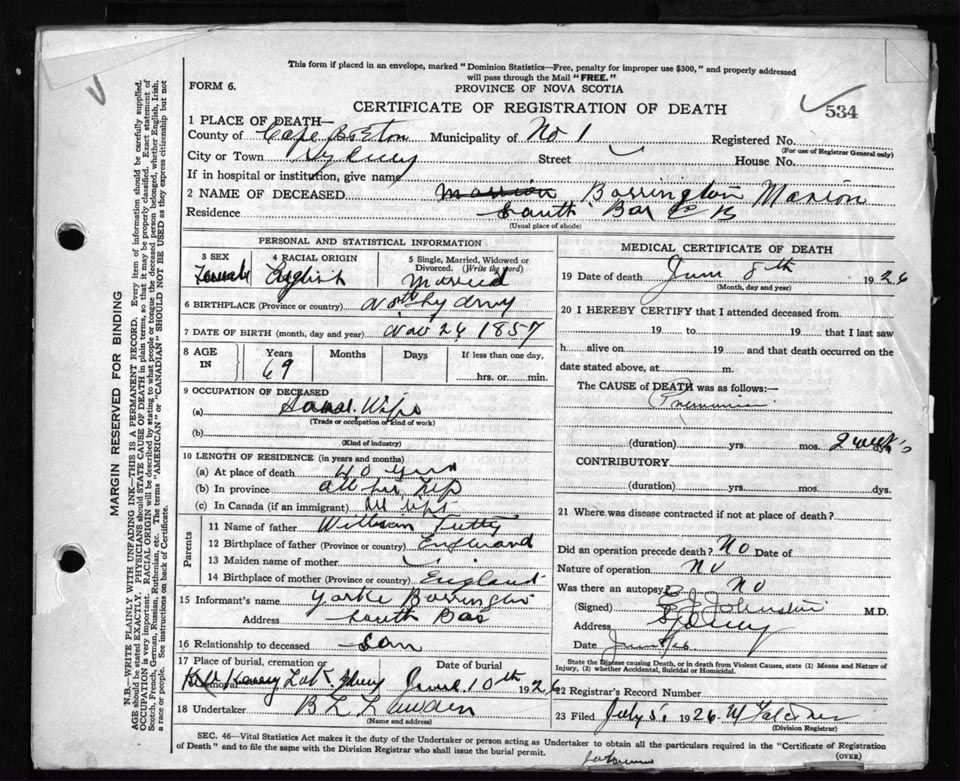 This form if placed in an envelope, marked "Dominion Statistics—Free, penalty for improper use $300," and properly addressed
will pass through the Mail "FREE."
FORM 6.
PROVINCE OF NOVA SCOTIA
CERTIFICATE OF REGISTRATION OF DEATH
534
1 PLACE OF DEATH—
County of Cape Breton Municipality of No 1 Registered No.
(For use of Registrar General only)
City or Town Sydney Street House No.
If in hospital or institution, give name
2 NAME OF DECEASED Marrion Barrington Marion
Residence South Bar C B
(Usual place of abode)
PERSONAL AND STATISTICAL INFORMATION
3 SEX Female
4 RACIAL ORIGIN English
5 Single, Married, Widowed or Divorced. (Write the word) Married
6 BIRTHPLACE (Province or country) North Sydney
7 DATE OF BIRTH (month, day and year) Nov 24 1857
8 AGE IN Years 69 Months Days If less than one day, hrs. or min.
9 OCCUPATION OF DECEASED
(a) House Wife
(Trade or occupation or kind of work)
(b)
(Kind of industry)
10 LENGTH OF RESIDENCE (in years and months)
(a) At place of death 40 years
(b) In province all her life
(c) In Canada (if an immigrant) All life
Parents
11 Name of father William Tutty
12 Birthplace of father (Province or country) England
13 Maiden name of mother
14 Birthplace of mother (Province or country) England
15 Informant's name Yorke Barrington
Address South Bar
16 Relationship to deceased Son
17 Place of burial, cremation or removal Date of burial
June 10th 1926
18 Undertaker
(Name and address)
MEDICAL CERTIFICATE OF DEATH
19 Date of death June 8th 1926
(Month, day and year)
20 I HEREBY CERTIFY that I attended deceased from
19 to 19 that I last saw
h alive on 19 and that death occurred on the
date stated above, at m.
The CAUSE of DEATH was as follows:—
(duration) yrs. mos. 2 weeks
CONTRIBUTORY
(duration) yrs. mos. dys.
21 Where was disease contracted if not at place of death?
Did an operation precede death? No Date of
Nature of operation No
Was there an autopsy? No
(Signed) Johnstone M.D.
Address Sydney
Date June
State the Disease causing Death, or in death from Violent Causes, state (1) Means and Nature of
Injury, (2) whether Accidental, Suicidal or Homicidal.
22 Registrar's Record Number
23 Filed July 5 1926
(Division Registrar)
SEC. 46—Vital Statistics Act makes it the duty of the Undertaker or person acting as Undertaker to obtain all the particulars required in the "Certificate of Registration
of Death" and to file the same with the Division Registrar who shall issue the burial permit.
(OVER)
MARGIN RESERVED FOR BINDING
N.B.—WRITE PLAINLY WITH UNFADING INK—THIS IS A PERMANENT RECORD. Every item of information should be carefully supplied.
AGE should be stated EXACTLY. PHYSICIANS should STATE CAUSE OF DEATH in plain terms, so that it may be properly classified. Exact statement of
OCCUPATION is very important. RACIAL ORIGIN will be described by stating to what people or tongue the deceased person belonged, whether English, Irish,
Scotch, French, German, Russian, Ruthenian, etc. The terms "AMERICAN" or "CANADIAN" SHOULD NOT BE USED as they express citizenship but not
a race or people. See instructions on back of Certificate.